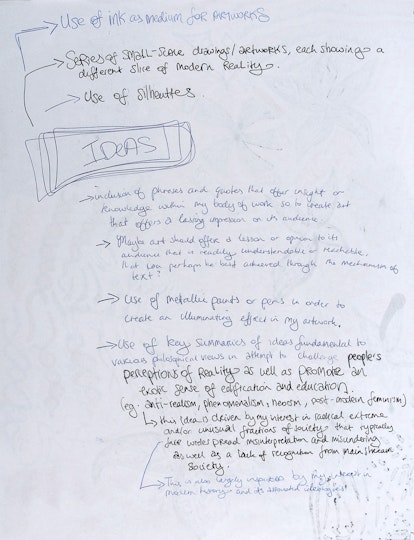 Use of ink as medium for artworks
Series of small-scale drawings/artworks, each showing a
different slice of modern Reality.
Use of silhouttes.
IDEAS
inclusion of phrases and quotes that offer insight or
knowledge within my body of work so to create art
that offers a lasting impression on its audience
Maybe art should offer a lesson or opinion to its
audience that is readily understandable or reachable.
that can perhaps be best achieved through the mechanism of
text?
Use of metallic paints or pens in order to
create an illuminating effect in my artwork.
Use of key summaries of ideas fundamental to
various philosophical views in attempt to challenge people's
perceptions of Reality as well as promote an
exotic sense of edification and education.
(eg. anti-realism, phenomenalism, neoism, post-modern feminism)
this idea is driven by my interest in radical extreme
and/or unusual fractions of society that typically
face widespread misinterpretation and misundering
as well as a lack of recognition from mainstream
society.
This is also largely inspired by my interest in
modern and its ideologies